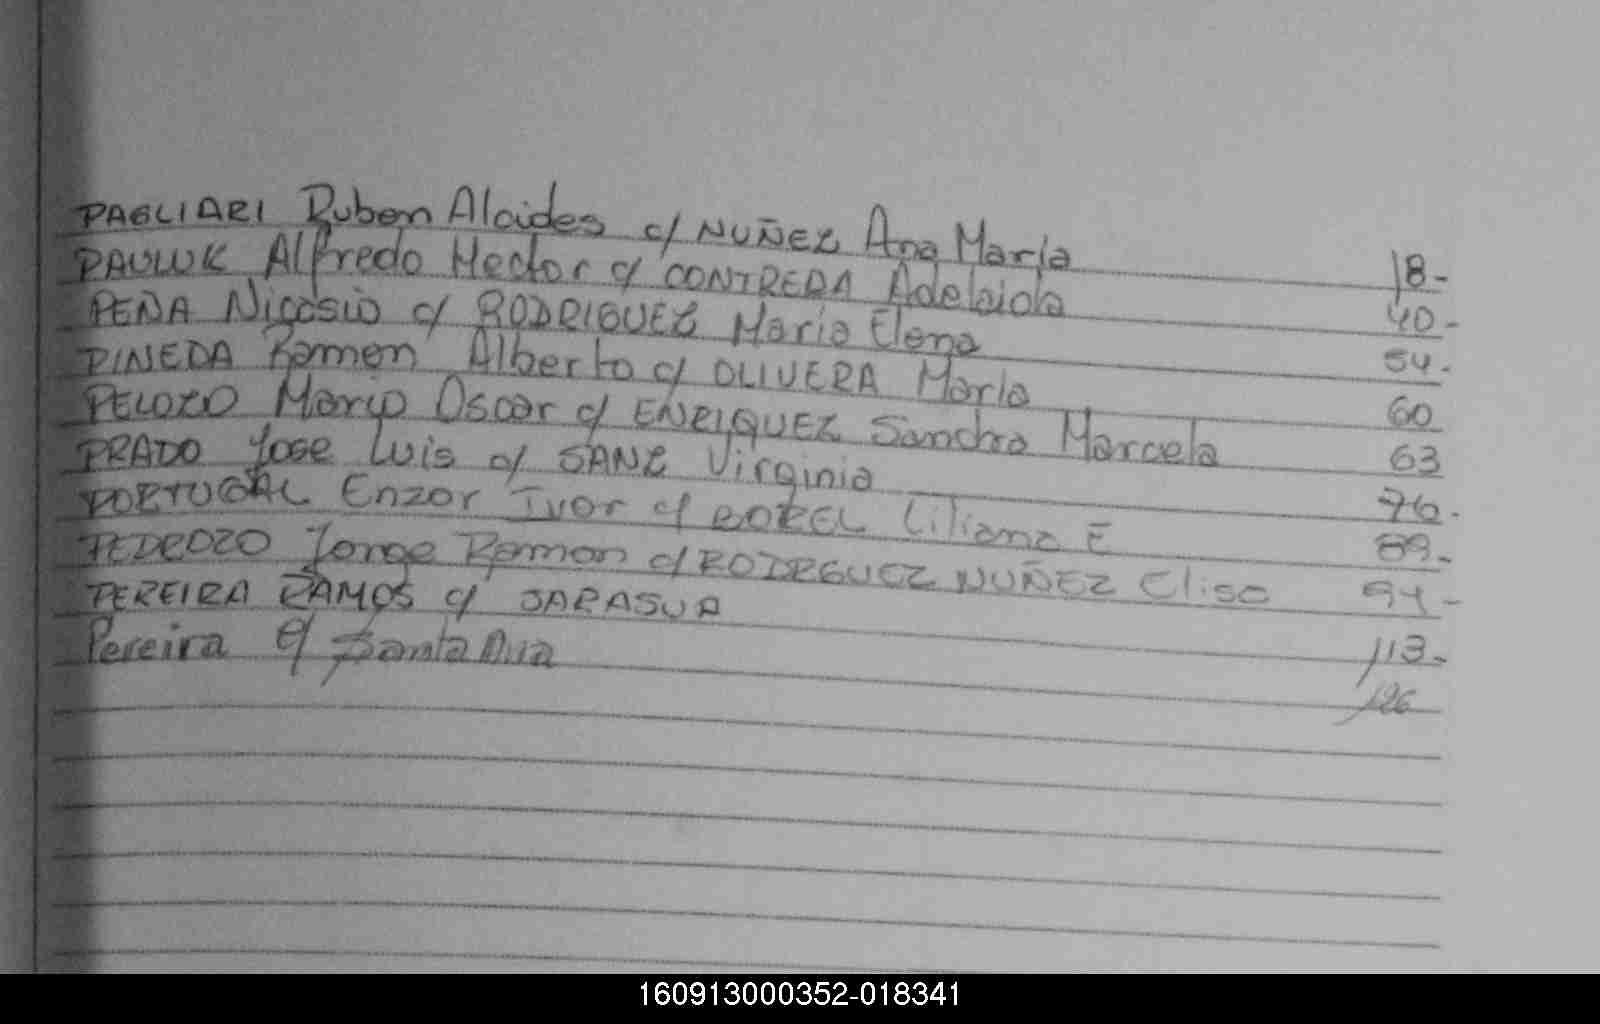 PAGLIARI Ruben Alcides c/ NUÑEZ Ana María 18-
PAULUK Alfredo Hector c/ CONTRERA Adelaida 40-
PEÑA Nicasio c/ RODRIGUEZ Maria Elena 54-
PINEDA Ramon Alberto c/ OLIVERA Maria 60
PELOZO Mario Oscar c/ ENRIQUEZ Sandra Marcela 63
PRADO Jose Luis c/ SANZ Virginia 76-
PORTUGAL Enzor Ivor c/ BOREL Liliana E 89-
PEDROZO Jorge Ramon c/ RODRGUEZ NUÑEZ Elisa 94-
PEREIRA RAMOS c/ SARASUA 113-
Pereira c/ Santa Ana 126
160913000352-018341